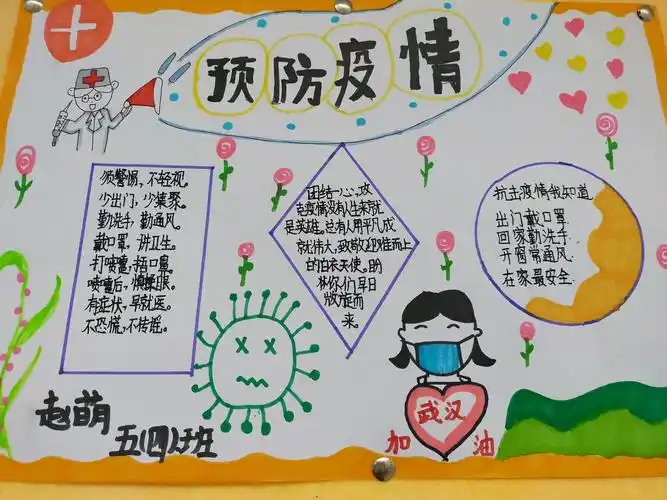 预防疫情
须警惕,不轻视。
少出门,少聚聚。
勤洗手,勤通风。
戴口罩,讲卫生。
打喷嚏,捂口鼻。
喷嚏后,慎揉眼。
有症状,早就医。
不恐慌,不传谣。
团结一心,攻
克疫情没有人生来就
是英雄。总有人用平凡成
就伟大,致敬迎难而上
的白衣天使。盼
你们早日
凯旋而
来。
抗击疫情我知道
出门戴口罩
回家勤洗手
开窗常通风
在家最安全
武汉
加油
赵萌
五(四)班